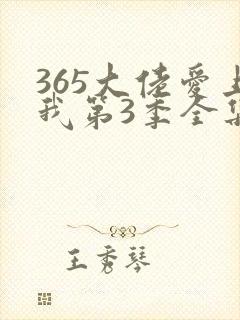 365大佬爱上
我第3季全集
王秀琴